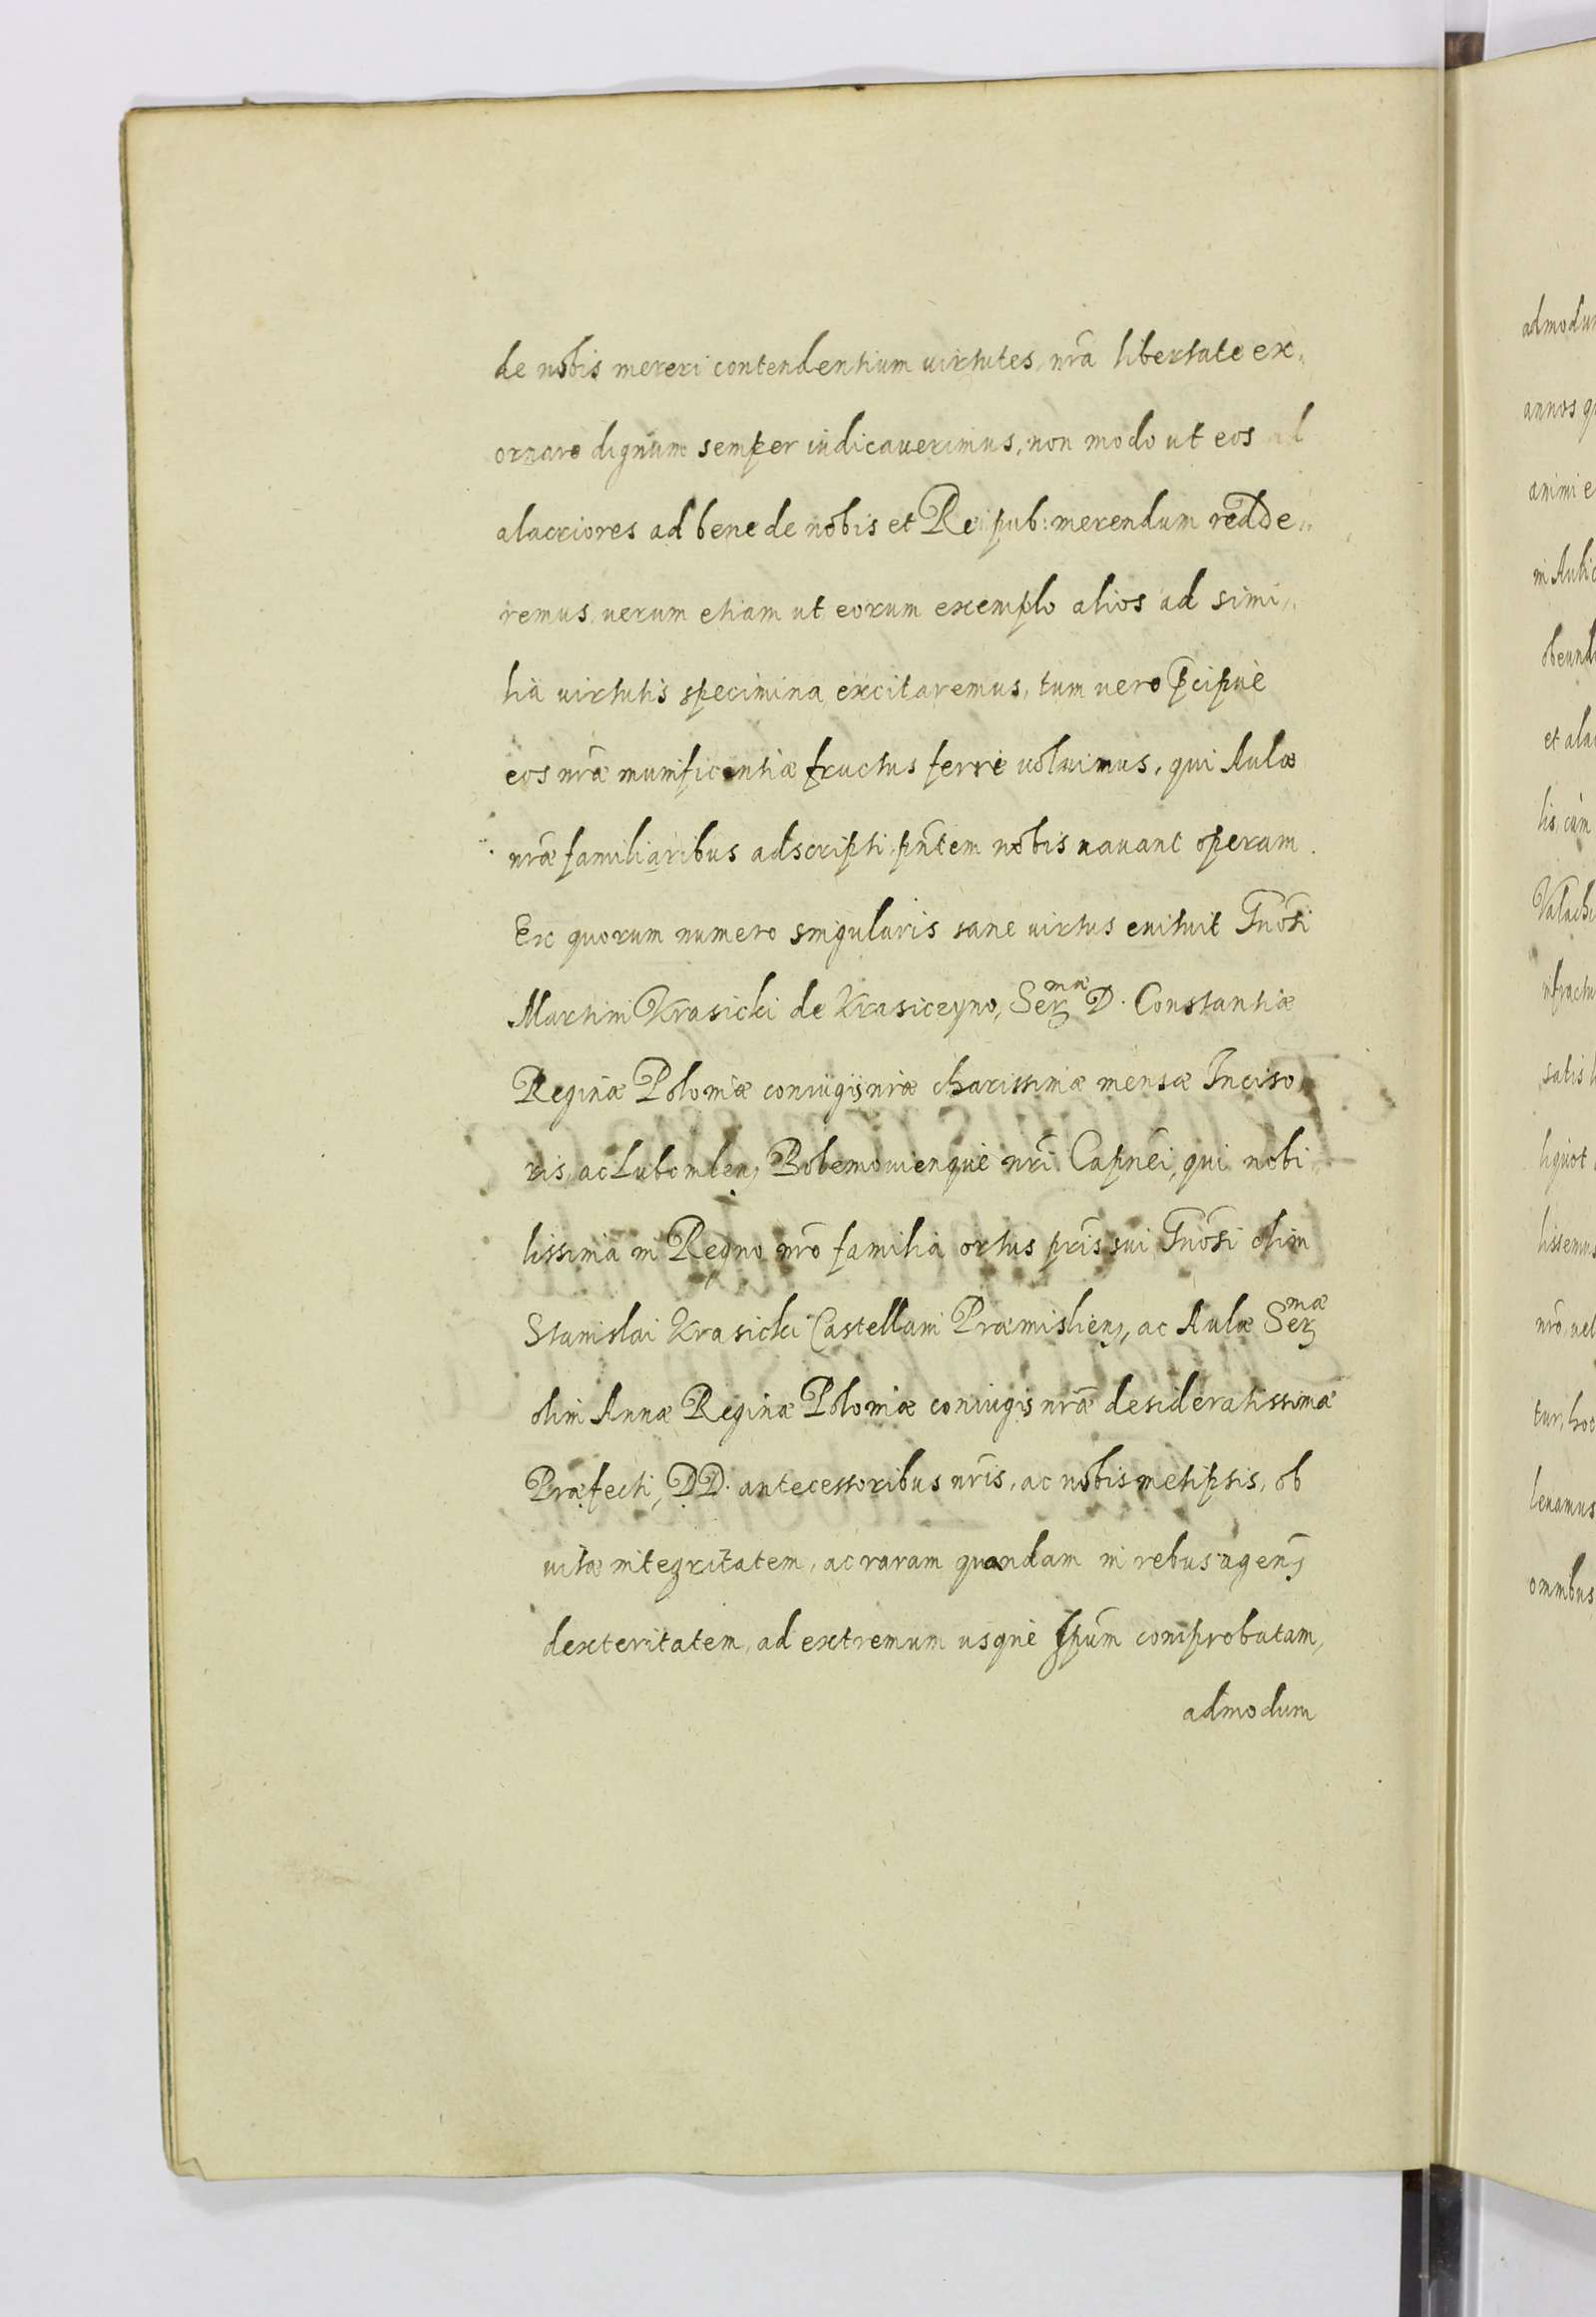 de nobis mereri contendentium uirtutes, nrã libertate ex„
ornare dignum semper iudicauerimus, non modo ut eos al
alacriores ad bene de nobis et Reipub: merendum redde„
remus, uerum etiam ut eorum exemplo alios ad simi„
lia uirtutis specimina excitaremus, tum uero p̃cipuè
eos nr̃æ munificentiæ fructus ferre uoluimus, qui Aulæ
nr̃æ familiaribus adscripti pñtem nobis nauant operam.
Ex quorum numero singularis sane uirtus enituit Gñosi
Martini Krasicki de Krasiczyno, Ser mæ D. Constantiæ
Reginæ Poloniæ coniugis nr̃æ charissimæ mensæ Inciso
ris, ac Lubomlen, Bolemouienque nr̃i Capnẽi, qui nobi„
lissima in Regno nr̃o familia ortus pr̃is sui Gñosi olim
Stanislai Krasicki Castellani Præmislien, ac Aulæ Ser mæ
olim Annæ Reginæ Poloniæ coniugis nr̃æ desideratissimæ
Præfecti, DD. antecessoribus nr̃is, ac nobismetipsis, ob
uitæ integritatem, ac raram quandam in rebus agen
dexteritatem, ad extremum usque spũm comprobatam,
admodum
admodu
annos q
animi e
in Aulic
obeund
et ala
lis, cùm
Valach
infractu
satis
liquot
lissemus
nr̃o, uel
tur, hoc
leuamus
omnibus